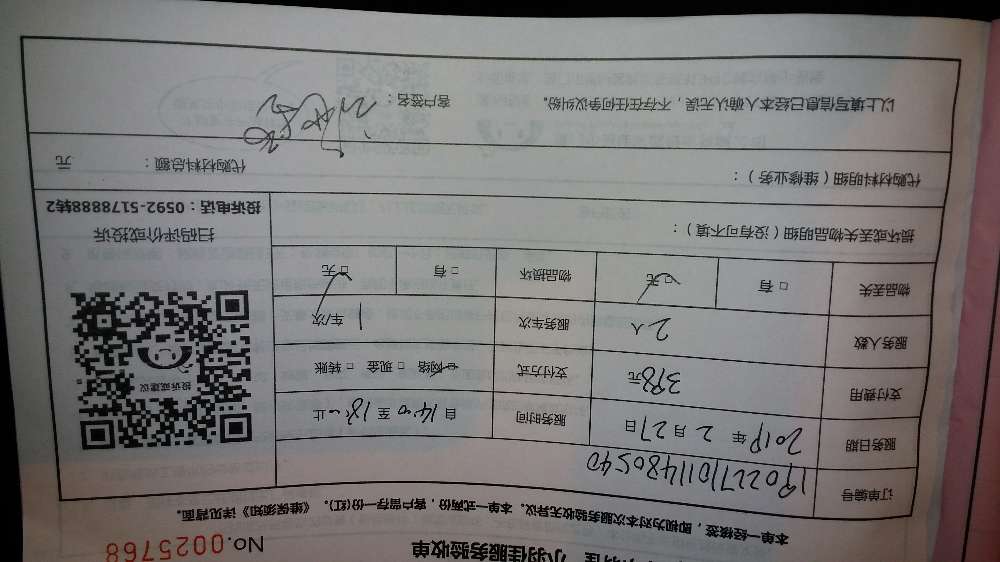 小羽佳服务验收单
No.0025768
本单一经核签，即视为对本次服务验收无异议。本单一式两份，客户留存一份(红)。《维保须知》详见背面。
订单编号 19022710111480540
服务日期 2019年2月27日 服务时间 自14:00至18:00止
支付费用 398元 支付方式 □网络 □现金 □转账
服务人数 2人 服务车次 1车/次
物品丢失 □有 □无 物品损坏 □有 □无
投诉或建议
扫码评价或投诉
投诉电话：0592-5178888转2
损坏或丢失物品明细（没有可不填）：
代购材料明细（维修业务）： 代购材料总额： 元
以上填写信息已经本人确认无误，不存在任何争议纠纷。 客户签名：